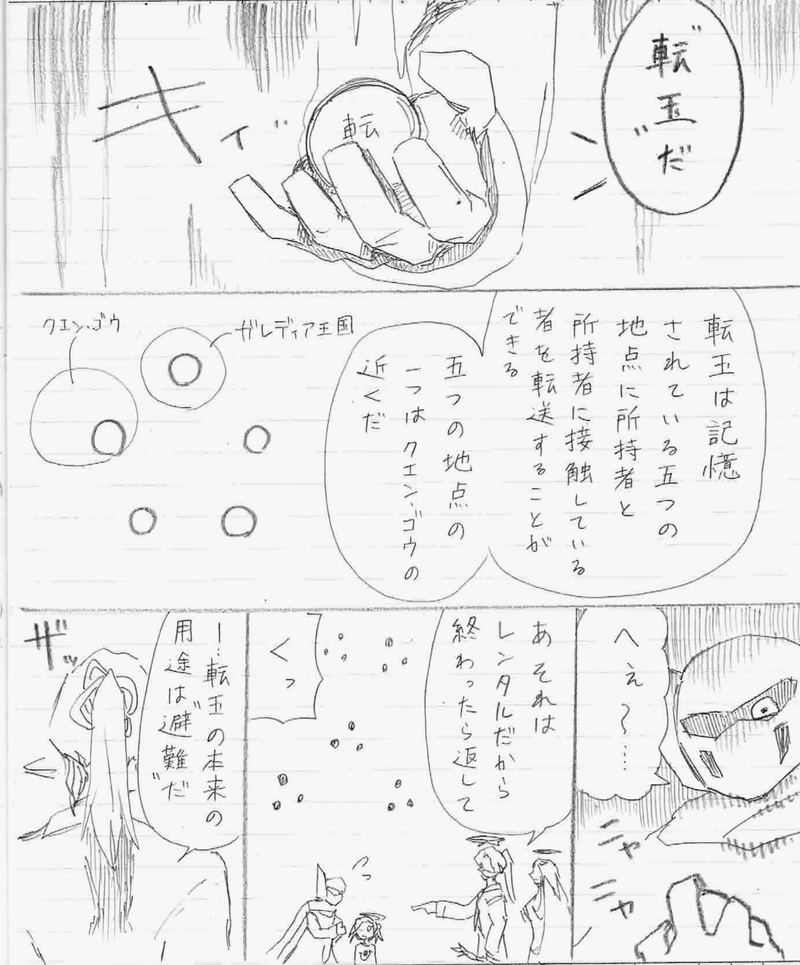 "転玉"だ
転
キィ"
転玉は記憶
されている五つの
地点に所持者と
所持者に接触している
者を転送することが
できる
五つの地点の
一つはクエン・ゴウの
近くだ
ガレディア王国
クエン・ゴウ
へぇ〜…
ニヤ
ニヤ
あそれは
レンタルだから
終わったら返して
くっ
ー…転玉の本来の
用途は"避難"だ
ザッ